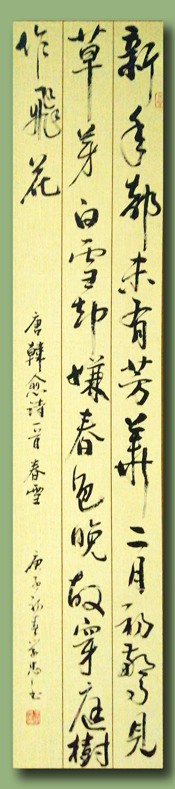 新年都未有芳華二月初驚見
草芽白雪却嫌春色晚故穿庭樹
作飛花
唐韓愈诗一首春雪
庚子